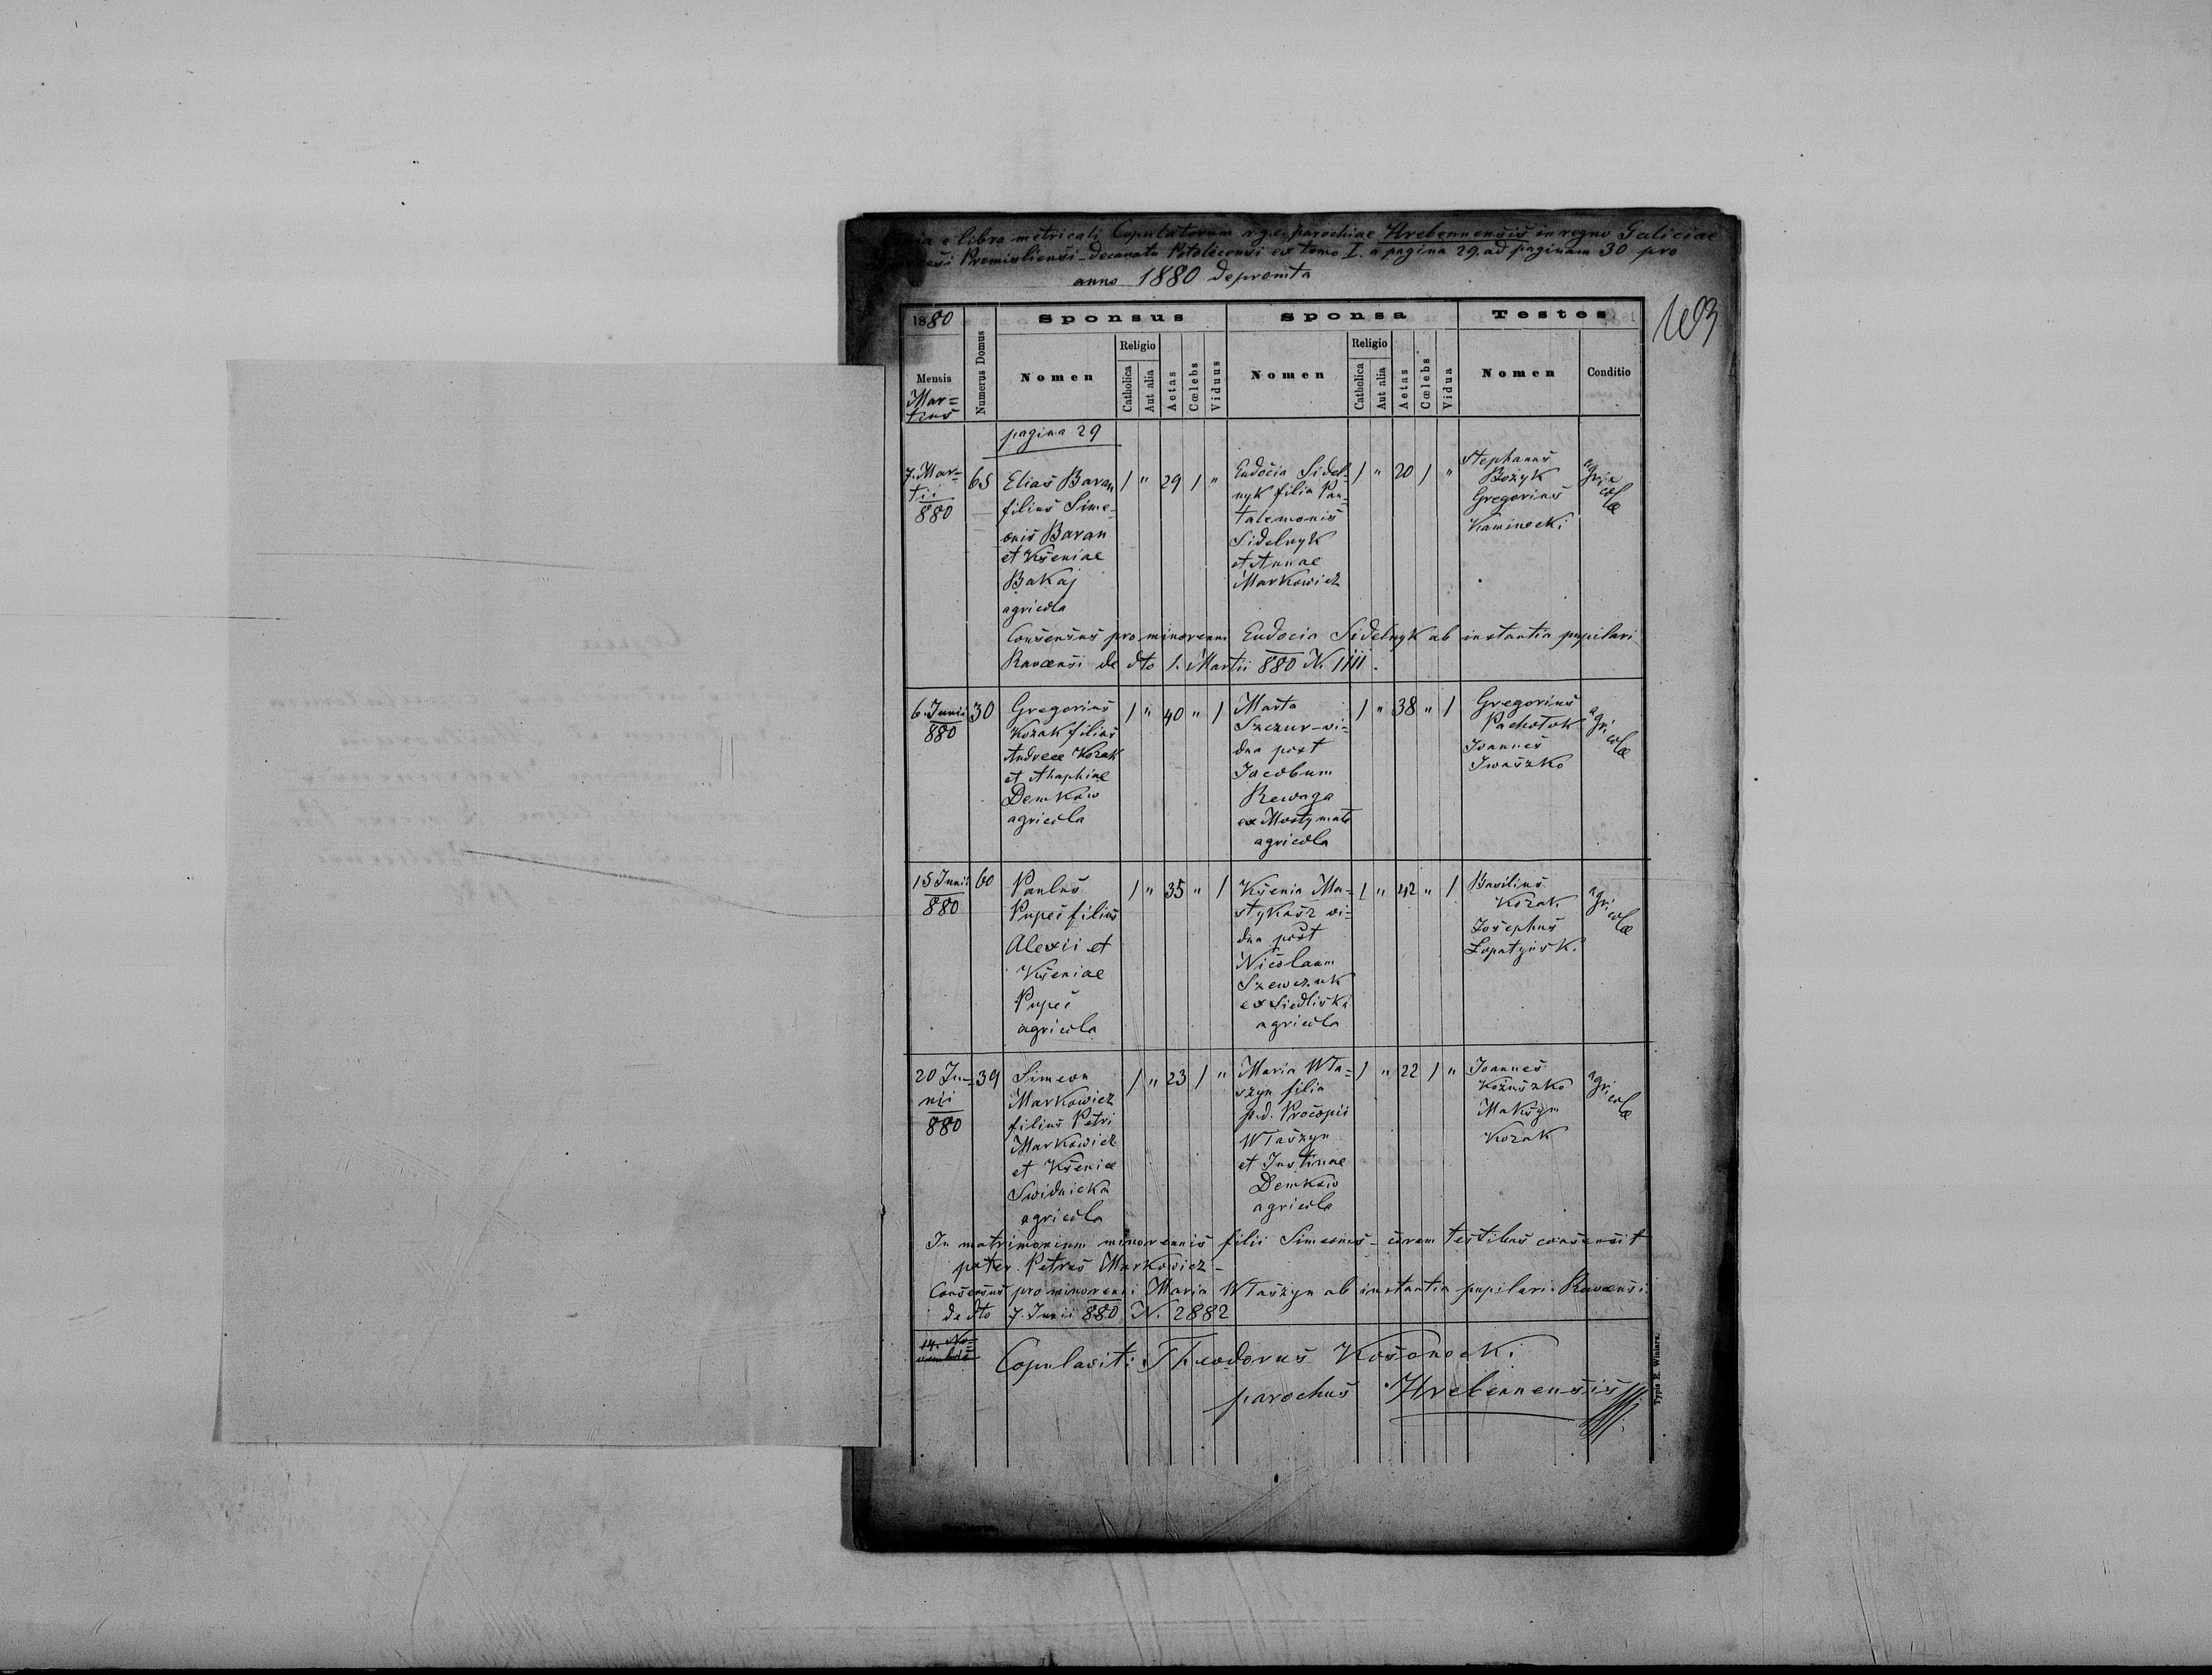 Copia e libro metricali Copulatorum r.g.c. parochiae Hrebennensis in regno Galiciae
Diocesi Premisliensi - Decanatu Potolicensi ex tomo I. a pagina 29. ad paginam 30 pro
anno 1880 depromta
103
1880 Sponsus Sponsa Testes
Mensis Mar=
tius
Numerus Domus
Nomen
Religio
Catholica
Aut alia
Aetas
Cœlebs
Viduus
Nomen
Religio
Catholica
Aut alia
Aetas
Cœlebs
Vidua
Nomen
Conditio
pagina 29
7. Mar-
tii
880
65
Elias Baran
filius Sime-
onis Baran
et Kseniae
Bakaj
agricola
1 " 29 1 "
Eudocia Sidel-
nyk filia Pan-
talemonis
Sidelnyk
et Annae
Markowicz
1 " 20 1 "
Stephanus
Bożyk
Gregorius
Kaminecki
agri
col
æ
Consensus pro minorenni Eudocia Sidelnyk ab instantia pupilari
Ravensi de dto 1. Martii 880 N. 1111.
6. Junii
880
30
Gregorius
Kozak filius
Andreæ Kozak
et Ahaphiae
Demków
agricola
1 " 40 " 1
Marta
Szczur - vi-
dua post
Jacobum
Rewaga
ex Mosty małe
agricola
1 " 38 " 1
Gregorius
Pachotok
Joannes
Iwaszko
agri
col
æ
15 Junii
880
60
Paulus
Pupeć filius
Alexii et
Kseniae
Pupeć
agricola
1 " 35 " 1
Ksenia Ma=
stykasz vi-
dua post
Nicolaum
Szewczuk
ex Siedliska
agricola
1 " 42 " 1
Basilius
Kozak
Josephus
Łopatyńsk.
agri
col
æ
20 Ju-
nii
880
39
Simeon
Markowicz
filius Petri
Markowicz
et Kseniæ
Swidnicka
agricola
1 " 23 1 "
Maria Wła=
szyn filia
p.d. Procopii
Właszyn
et Justinae
Demków
agricola
1 " 22 1 "
Joannes
Kożuszko
Maksym
Kozak
agri
col
æ
In matrimonium minorennis filii Simeonis - coram testibus consensit
pater Petrus Markowicz -
Consensus pro minorenni Maria Właszyn ab instantia pupilari Ravensi
de dto 7. Junii 880 N. 2882
14. No=
vembris
Copulavit: Theodorus Kosonocki
parochus Hrebennensis
Typis E. Winiarz.